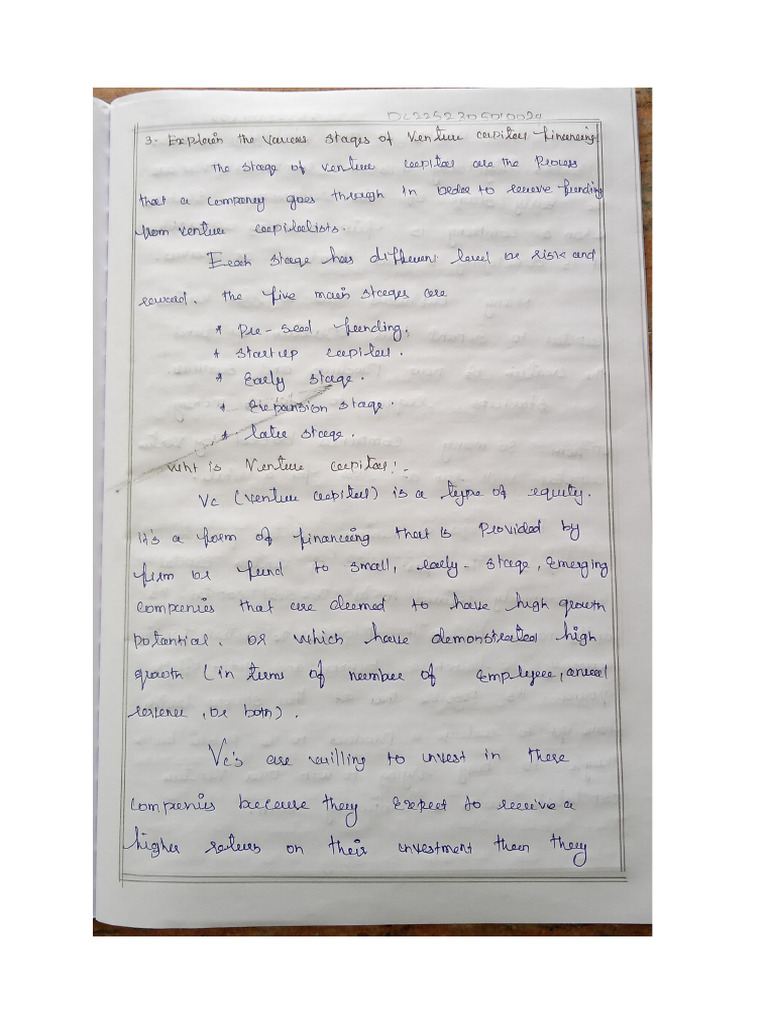 DL2252305010029
3. Explain the various stages of Venture capital financing
The stage of venture capital are the process
that a company goes through in order to receive funding
from venture capitalists.
Each stage has different level or risk and
reward. The five main stages are
* Pre-seed funding.
* Startup capital.
* Early stage.
* Expansion stage.
* Late stage.
Wht is Venture capital:-
Vc (venture capital) is a type of equity.
It's a form of financing that is Provided by
firm or fund to small, early-stage, Emerging
companies that are deemed to have high growth
potential. or which have demonstrated high
growth (in terms of number of Employee, annual
revenue, or both).
Vc's are willing to invest in these
companies because they Expect to receive a
higher return on their investment than they